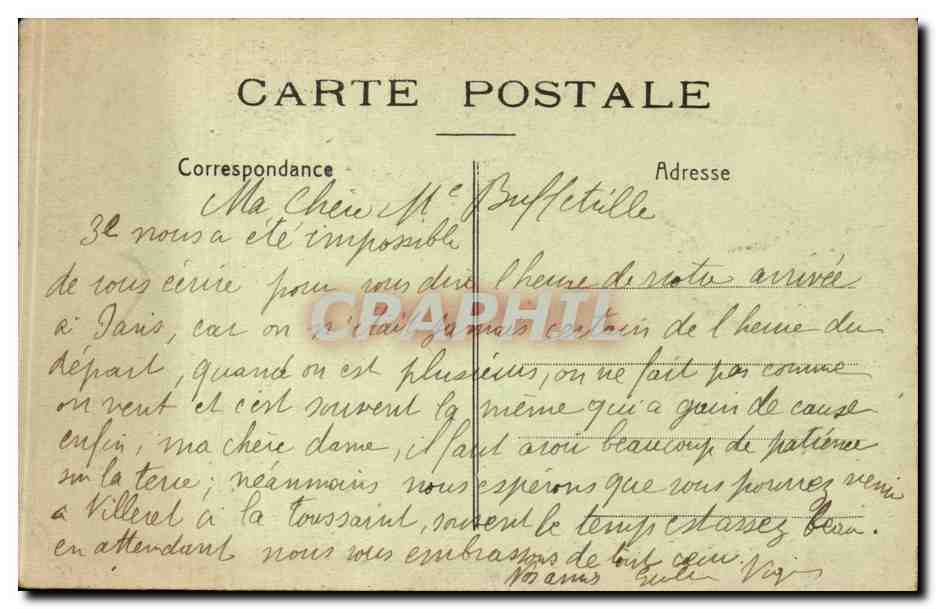 CARTE POSTALE
Correspondance
Adresse
Ma Chère Me Buffetille
Il nous a été impossible
de vous écrire pour vous dire l'heure de notre arrivée
à Paris, car on n'était jamais certain de l'heure du
départ, quand on est plusieurs, on ne fait pas comme
on veut et c'est souvent la même qui a gain de cause
enfin, ma chère dame, il faut avoir beaucoup de patience
sur la terre; néanmoins nous espérons que vous pourrez venir
à Villeret à la Toussaint, souvent le temps est assez beau.
en attendant nous vous embrassons de tout cœur.
Vos amis
CPAPHIL